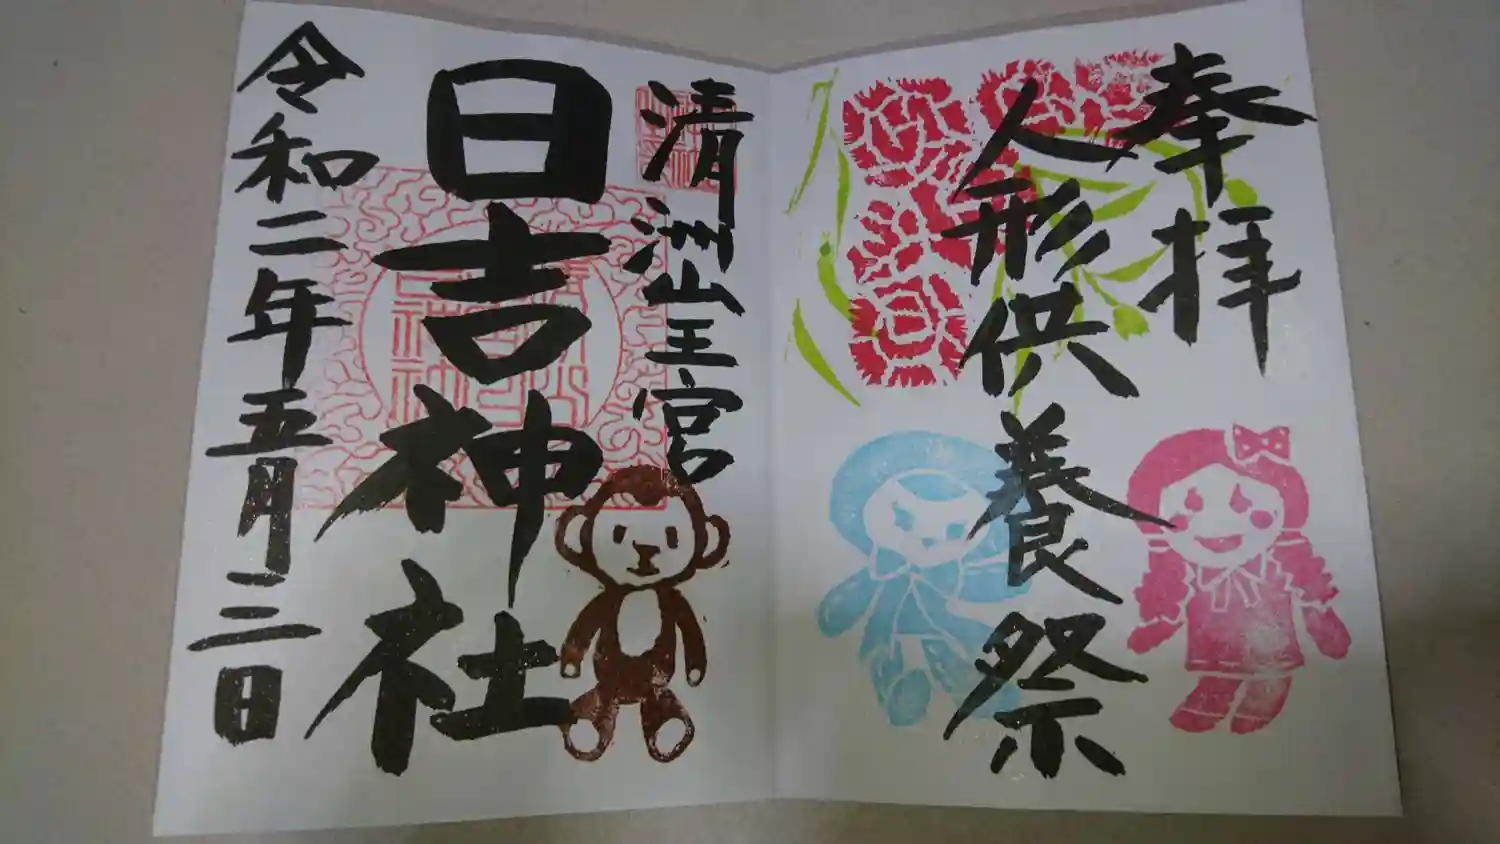 奉拝
人形供養祭
清洲山王宮
日吉神社
令和二年五月二日